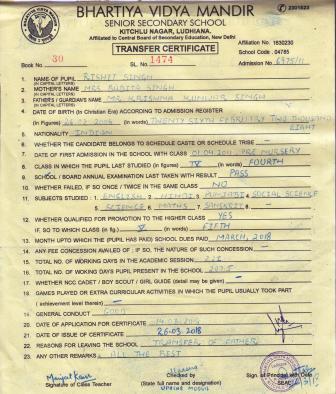 BHARTIYA VIDYA MANDIR
SENIOR SECONDARY SCHOOL
KITCHLU NAGAR, LUDHIANA.
Affiliated to Central Board of Secondary Education, New Delhi
TRANSFER CERTIFICATE
Affiliation No. 1630230
School Code : 04785
Book No 30 SL. No. 1474 Admission No 6975/11
1. NAME OF PUPIL RISHIT SINGH
(IN CAPITAL LETTERS)
2. MOTHER'S NAME MRS BOBITA SINGH
(IN CAPITAL LETTERS)
3. FATHER'S / GUARDIAN'S NAME MR KRISHNA KUMAR SINGH
(IN CAPITAL LETTERS)
4. DATE OF BIRTH (In Christian Era) ACCORDING TO ADMISSION REGISTER
(in Figures) 26.02.2008 (in words) TWENTY SIXTH FEBRUARY TWO THOUSAND
EIGHT
5. NATIONALITY INDIAN
6. WHETHER THE CANDIDATE BELONGS TO SCHEDULE CASTE OR SCHEDULE TRIBE —
7. DATE OF FIRST ADMISSION IN THE SCHOOL WITH CLASS 01.04.2011 PRE NURSERY
8. CLASS IN WHICH THE PUPIL LAST STUDIED (in figures) IV (in words) FOURTH
9. SCHOOL / BOARD ANNUAL EXAMINATION LAST TAKEN WITH RESULT PASS
10. WHETHER FAILED, IF SO ONCE / TWICE IN THE SAME CLASS NO
11. SUBJECTS STUDIED : 1 ENGLISH 2 HINDI 3 PUNJABI 4 SOCIAL SCIENCE
5 SCIENCE 6 MATHS 7 SANSKRIT 8 —
12. WHETHER QUALIFIED FOR PROMOTION TO THE HIGHER CLASS YES
IF, SO TO WHICH CLASS (in fig.) V (in words) FIFTH
13. MONTH UPTO WHICH THE (PUPIL HAS PAID) SCHOOL DUES PAID MARCH, 2018
14. ANY FEE CONCESSION AVAILED OF ; IF SO, THE NATURE OF SUCH CONCESSION —
15. TOTAL NO. OF WORKING DAYS IN THE ACADEMIC SESSION
16. TOTAL NO. OF WOKING DAYS PUPIL PRESENT IN THE SCHOOL
17. WHETHER NCC CADET / BOY SCOUT / GIRL GUIDE (detail may be given) —
18. GAMES PLAYED OR EXTRA CURRICULAR ACTIVITIES IN WHICH THE PUPIL USUALLY TOOK PART
( achievement level therein)
19. GENERAL CONDUCT GOOD
20. DATE OF APPLICATION FOR CERTIFICATE
21. DATE OF ISSUE OF CERTIFICATE 26.03.2018
22. REASONS FOR LEAVING THE SCHOOL TRANSFER OF FATHER
23. ANY OTHER REMARKS ALL THE BEST
Signature of Class Teacher
Checked by
(State full name and designation)
Sign. of Principal with Date
SEAL